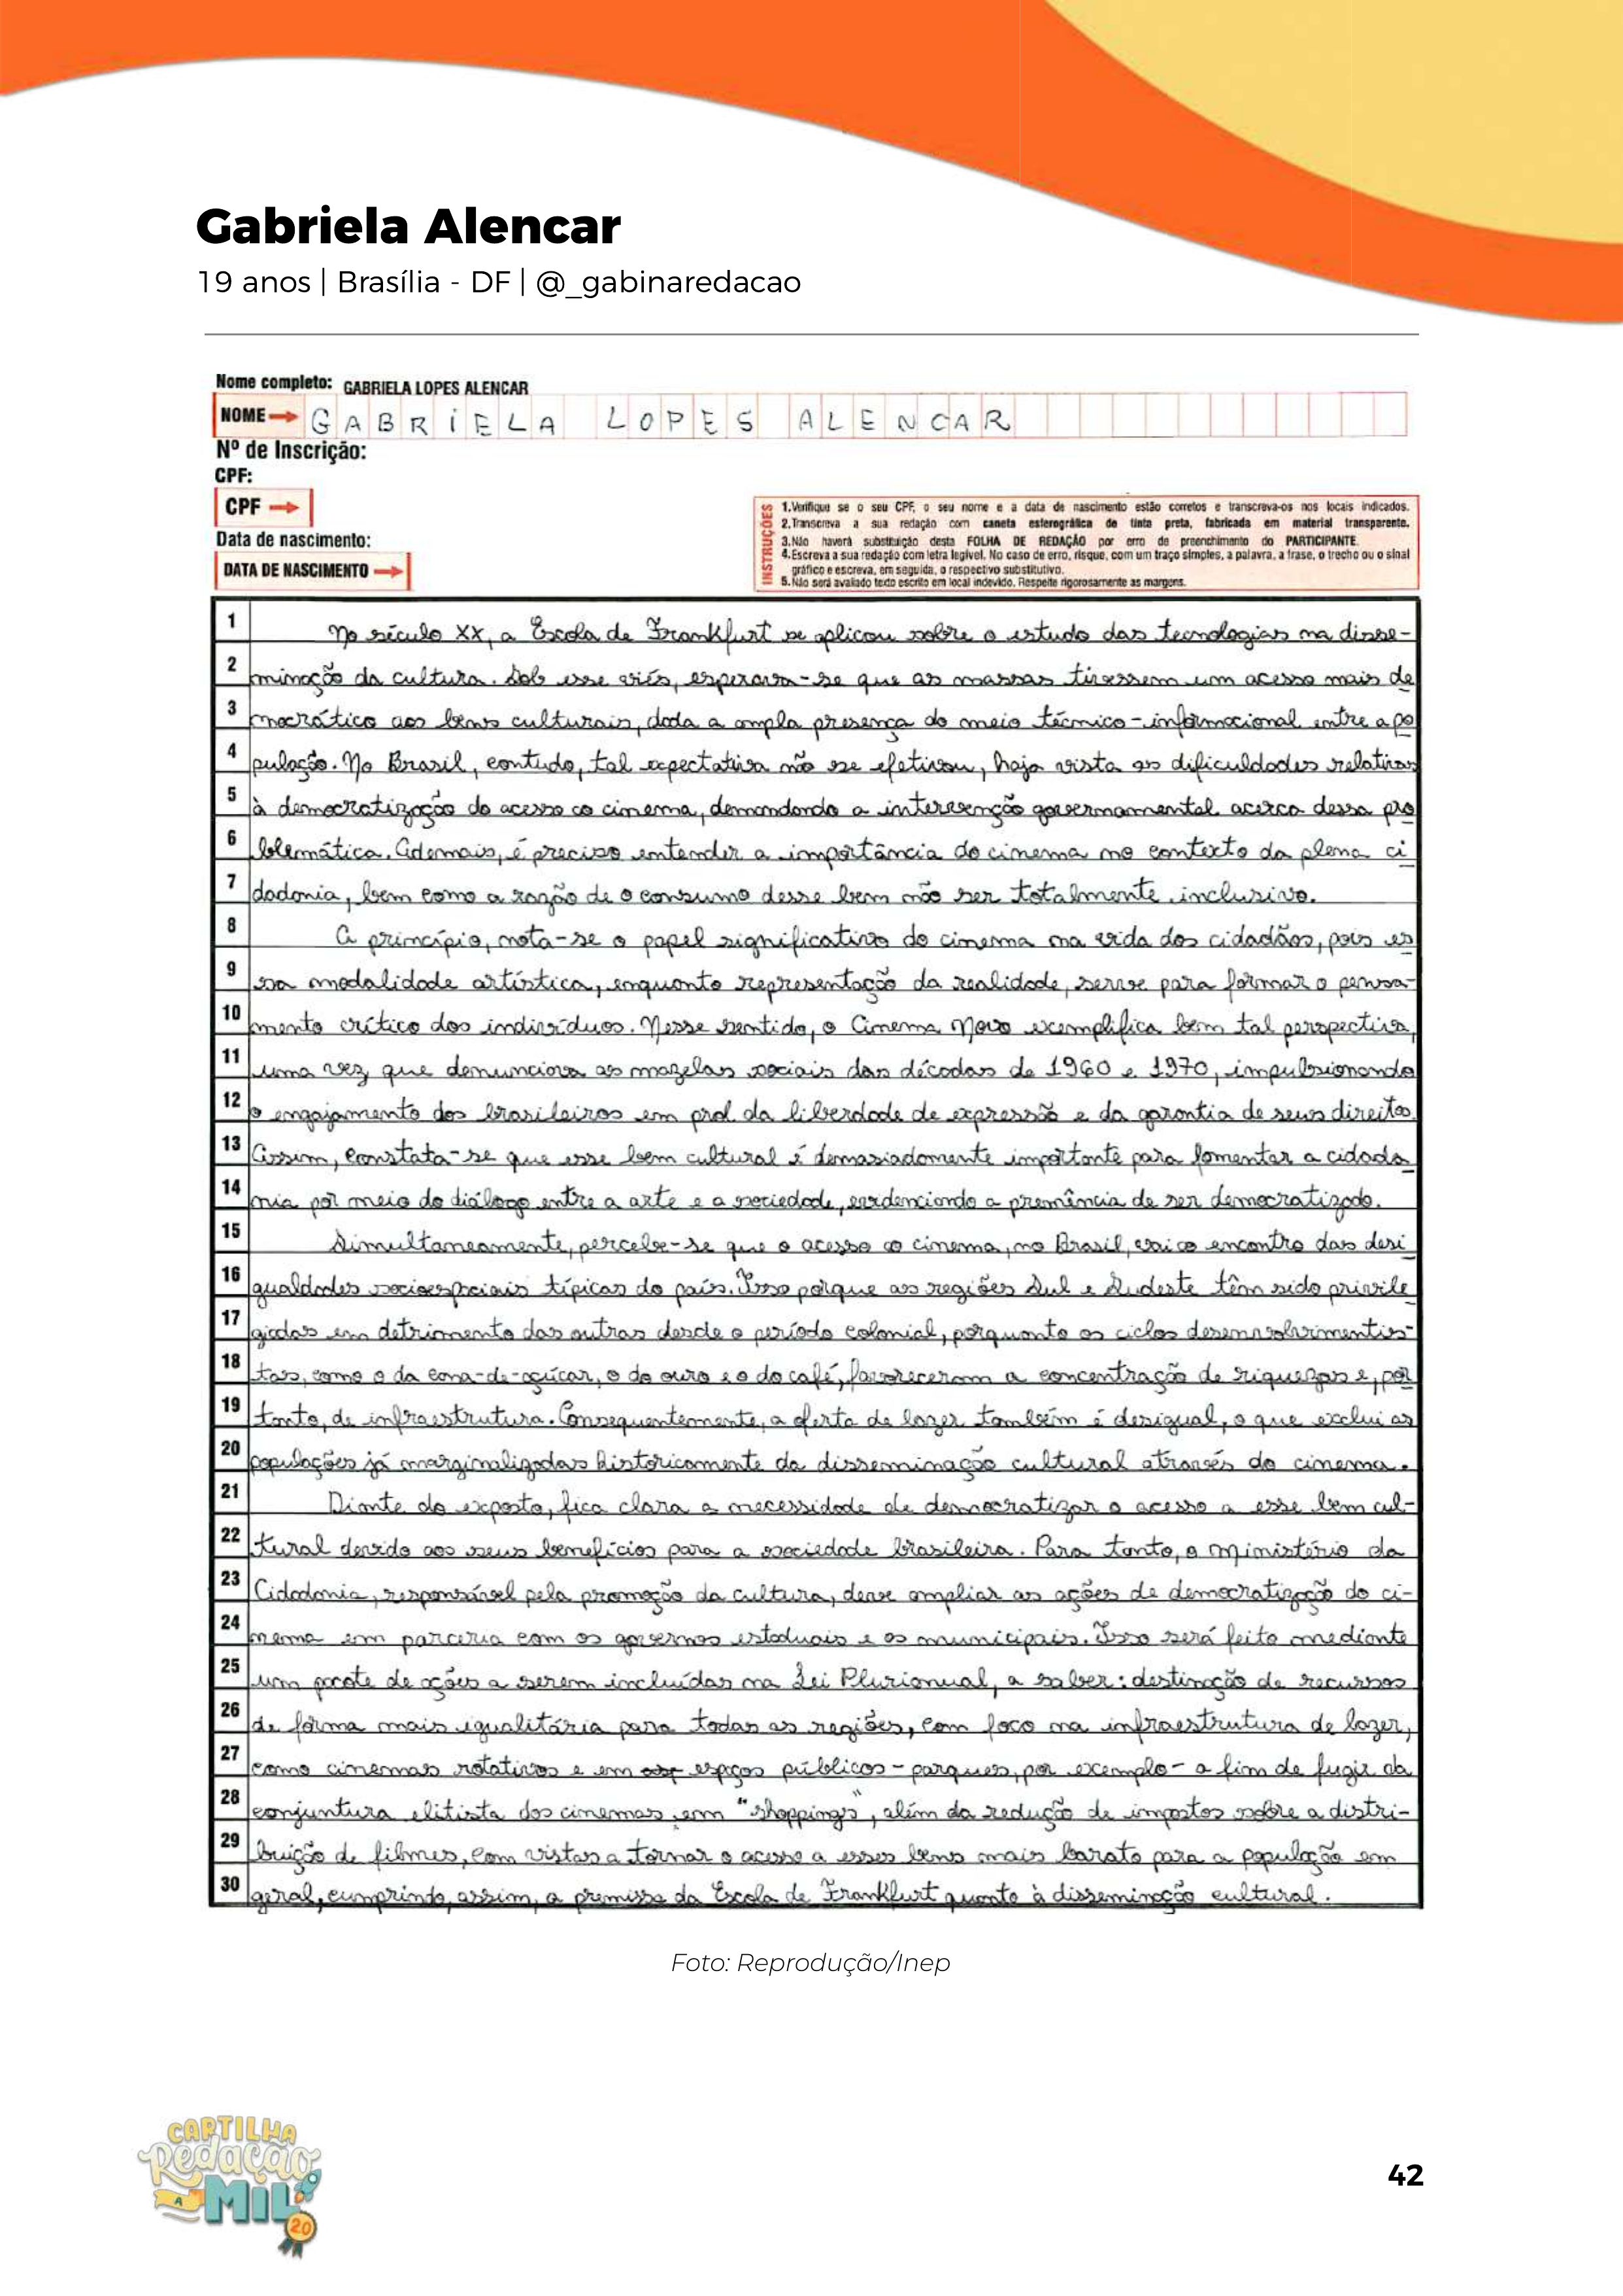 Gabriela Alencar
19 anos | Brasília - DF | @_gabinaredacao
Nome completo: GABRIELA LOPES ALENCAR
NOME GABRIELA LOPES ALENCAR
Nº de Inscrição:
CPF:
CPF
Data de nascimento:
DATA DE NASCIMENTO
INSTRUÇÕES
1.Verifique se o seu CPF, o seu nome e a data de nascimento estão corretos e transcreva-os nos locais indicados.
2.Transcreva a sua redação com caneta esferográfica de tinta preta, fabricada em material transparente.
3.Não haverá substituição desta FOLHA DE REDAÇÃO por erro de preenchimento do PARTICIPANTE.
4.Escreva a sua redação com letra legível. No caso de erro, risque, com um traço simples, a palavra, a frase, o trecho ou o sinal
gráfico e escreva, em seguida, o respectivo substitutivo.
5.Não será avaliado texto escrito em local indevido. Respeite rigorosamente as margens.
1 No século XX, a Escola de Frankfurt se aplicou sobre o estudo das tecnologias na disse-
2 minação da cultura. Sob esse viés, esperava-se que as massas tivessem um acesso mais de
3 mocrático aos bens culturais, dada a ampla presença do meio técnico-informacional entre a po
4 pulação. No Brasil, contudo, tal expectativa não se efetivou, haja vista as dificuldades relativas
5 à democratização do acesso ao cinema, demandando a intervenção governamental acerca dessa pro
6 blemática. Ademais, é preciso entender a importância do cinema no contexto da plena ci
7 dadania, bem como a razão de o consumo desse bem não ser totalmente inclusivo.
8 A princípio, nota-se o papel significativo do cinema na vida dos cidadãos, pois es
9 sa modalidade artística, enquanto representação da realidade, serve para formar o pensa-
10 mento crítico dos indivíduos. Nesse sentido, o Cinema Novo exemplifica bem tal perspectiva,
11 uma vez que denunciava as mazelas sociais das décadas de 1960 e 1970, impulsionando
12 o engajamento dos brasileiros em prol da liberdade de expressão e da garantia de seus direitos.
13 Assim, constata-se que esse bem cultural é demasiadamente importante para fomentar a cidada
14 nia por meio do diálogo entre a arte e a sociedade, evidenciando a premência de ser democratizado.
15 Simultaneamente, percebe-se que o acesso ao cinema, no Brasil, vai ao encontro das desi
16 gualdades socioespaciais típicas do país. Isso porque as regiões Sul e Sudeste têm sido privile
17 giadas em detrimento das outras desde o período colonial, porquanto os ciclos desenvolvimentis-
18 tas, como o da cana-de-açúcar, o do ouro e o do café, favoreceram a concentração de riquezas e, por
19 tanto, de infraestrutura. Consequentemente, a oferta de lazer também é desigual, o que exclui as
20 populações já marginalizadas historicamente da disseminação cultural através do cinema.
21 Diante do exposto, fica clara a necessidade de democratizar o acesso a esse bem cul-
22 tural devido aos seus benefícios para a sociedade brasileira. Para tanto, o Ministério da
23 Cidadania, responsável pela promoção da cultura, deve ampliar as ações de democratização do ci-
24 nema em parceria com os governos estaduais e os municipais. Isso será feito mediante
25 um pacote de ações a serem incluídas na Lei Plurianual, a saber: destinação de recursos
26 de forma mais igualitária para todas as regiões, com foco na infraestrutura de lazer,
27 como cinemas rotativos e em espaços públicos - parques, por exemplo - a fim de fugir da
28 conjuntura elitista dos cinemas em "shoppings", além da redução de impostos sobre a distri-
29 buição de filmes, com vistas a tornar o acesso a esses bens mais barato para a população em
30 geral, cumprindo, assim, a premissa da Escola de Frankfurt quanto à disseminação cultural.
Foto: Reprodução/Inep
CARTILHA
Redação
A MIL
2.0
42